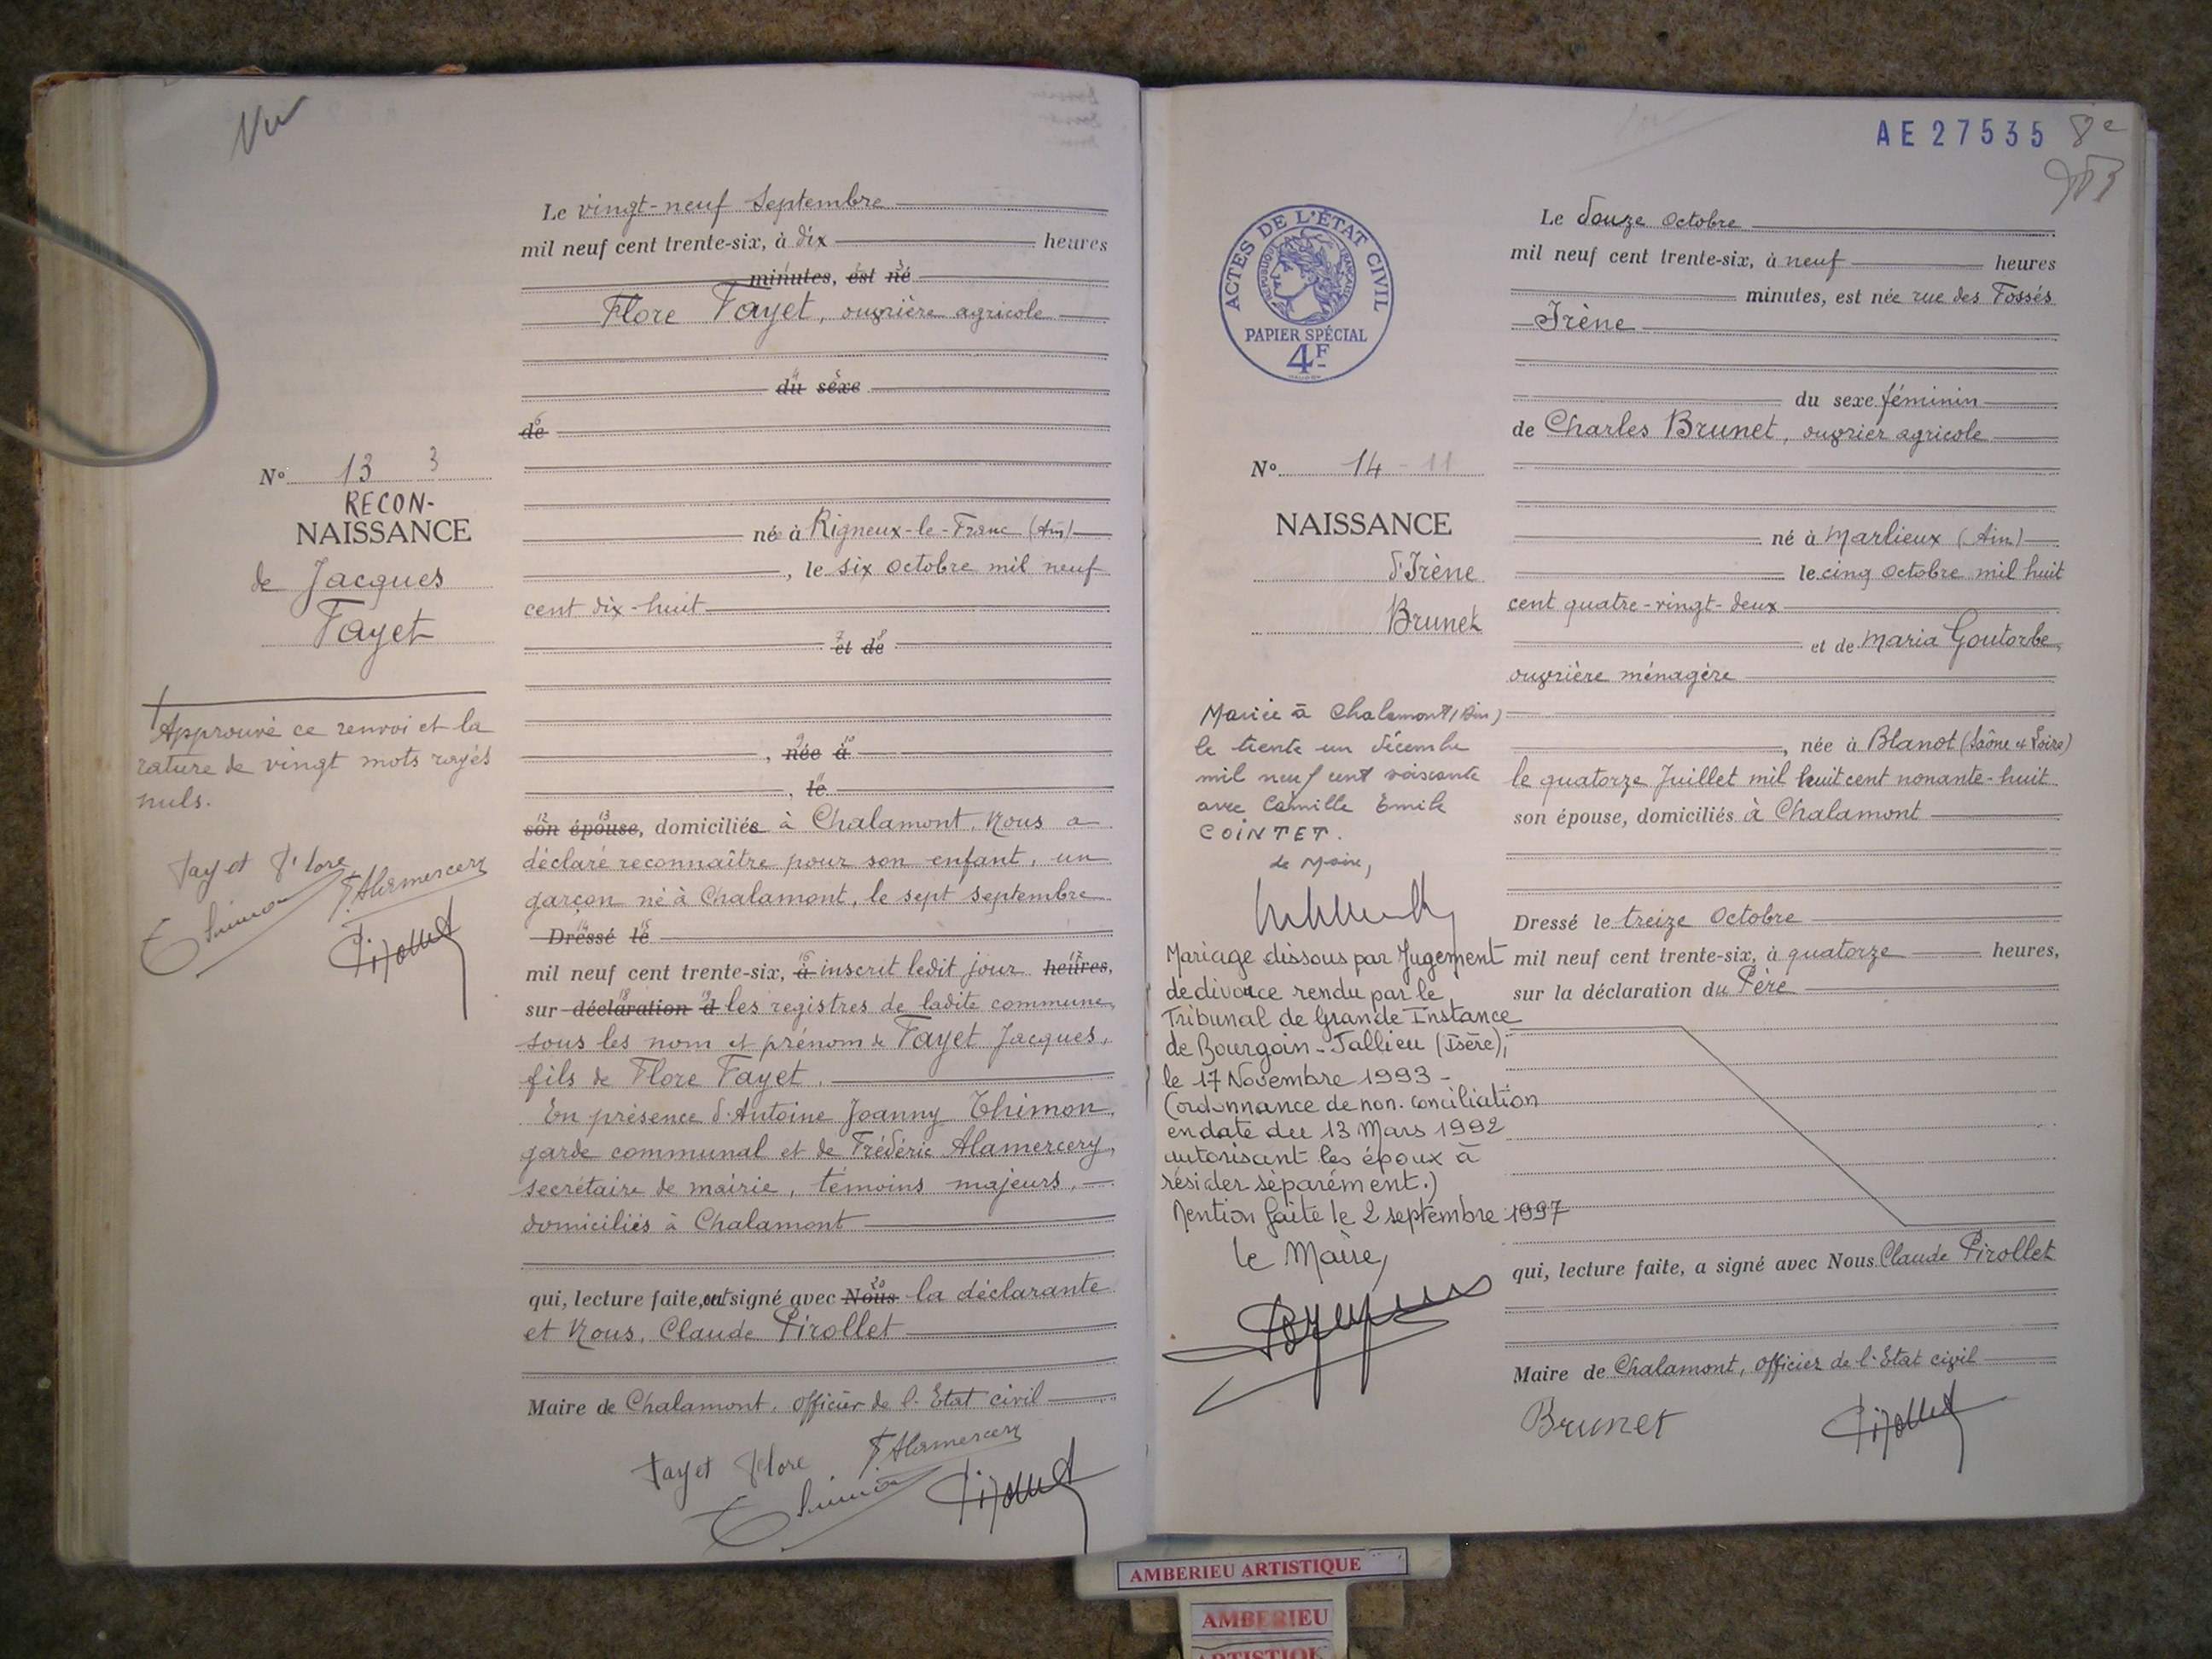 Vu
Le vingt-neuf Septembre
mil neuf cent trente-six, à dix heures
minutes, est né
Flore Fayet, ouvrière agricole
du sexe
de
né à Rigneux-le-Franc (Ain)
, le six octobre mil neuf
cent dix-huit
et de
, née à
, le
son épouse, domiciliée à Chalamont. Nous a
déclaré reconnaître pour son enfant, un
garçon né à Chalamont, le sept septembre
Dressé le
mil neuf cent trente-six, à inscrit ledit jour heures,
sur déclaration d les registres de ladite commune,
sous les nom et prénom de Fayet Jacques,
fils de Flore Fayet.
En présence d'Antoine Joanny Thimon,
garde communal et de Frédéric Alamercery,
secrétaire de mairie, témoins majeurs,
domiciliés à Chalamont
qui, lecture faite, ont signé avec Nous la déclarante
et Nous, Claude Pirollet
Maire de Chalamont, officier de l'Etat civil
Fayet Flore F. Alamercery
Thimon Pirollet
N° 13 3
RECON-
NAISSANCE
de Jacques
Fayet
Approuvé ce renvoi et la
rature de vingt mots rayés
nuls.
Fayet Flore
F. Alamercery
Thimon
Pirollet
AE 27535 8e
ACTES DE L'ÉTAT CIVIL
RÉPUBLIQUE FRANÇAISE
PAPIER SPÉCIAL
4F
Le douze Octobre
mil neuf cent trente-six, à neuf heures
minutes, est née rue des Fossés
Irène
du sexe féminin
de Charles Brunet, ouvrier agricole
né à Marlieux (Ain)
le cinq Octobre mil huit
cent quatre-vingt-deux
et de Maria Goutorbe,
ouvrière ménagère
, née à Blanot (Saône et Loire)
le quatorze Juillet mil huit cent nonante-huit
son épouse, domiciliés à Chalamont
Dressé le treize Octobre
mil neuf cent trente-six, à quatorze heures,
sur la déclaration du Père
qui, lecture faite, a signé avec Nous Claude Pirollet
Maire de Chalamont, officier de l'Etat civil
Brunet Pirollet
N° 14 - 11
NAISSANCE
d'Irène
Brunet
Mariée à Chalamont (Ain)
le trente un décembre
mil neuf cent soixante
avec Camille Emile
COINTET.
Le Maire,
Mariage dissous par Jugement
de divorce rendu par le
Tribunal de Grande Instance
de Bourgoin-Jallieu (Isère),
le 17 Novembre 1993 -
(ordonnance de non. conciliation
en date du 13 Mars 1992
autorisant les époux à
résider séparément.)
Mention faite le 2 septembre 1997
le Maire,
AMBERIEU ARTISTIQUE
AMBERIEU
ARTISTIQUE